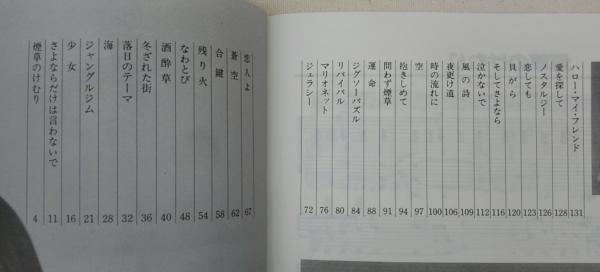 煙草のけむり 4
さよならだけは言わないで 11
少女 16
ジャングルジム 21
海 28
落日のテーマ 32
冬ざれた街 36
酒酔草 40
なわとび 48
残り火 54
合鍵 58
蒼空 62
恋人よ 67
ジェラシー 72
マリオネット 76
リバイバル 80
ジグソーパズル 84
運命 88
問わず煙草 91
抱きしめて 94
空 97
時の流れに 100
夜更け道 106
風の詩 109
泣かないで 112
そしてさよなら 116
貝がら 120
恋しても 123
ノスタルジー 126
愛を探して 128
ハロー・マイ・フレンド 131